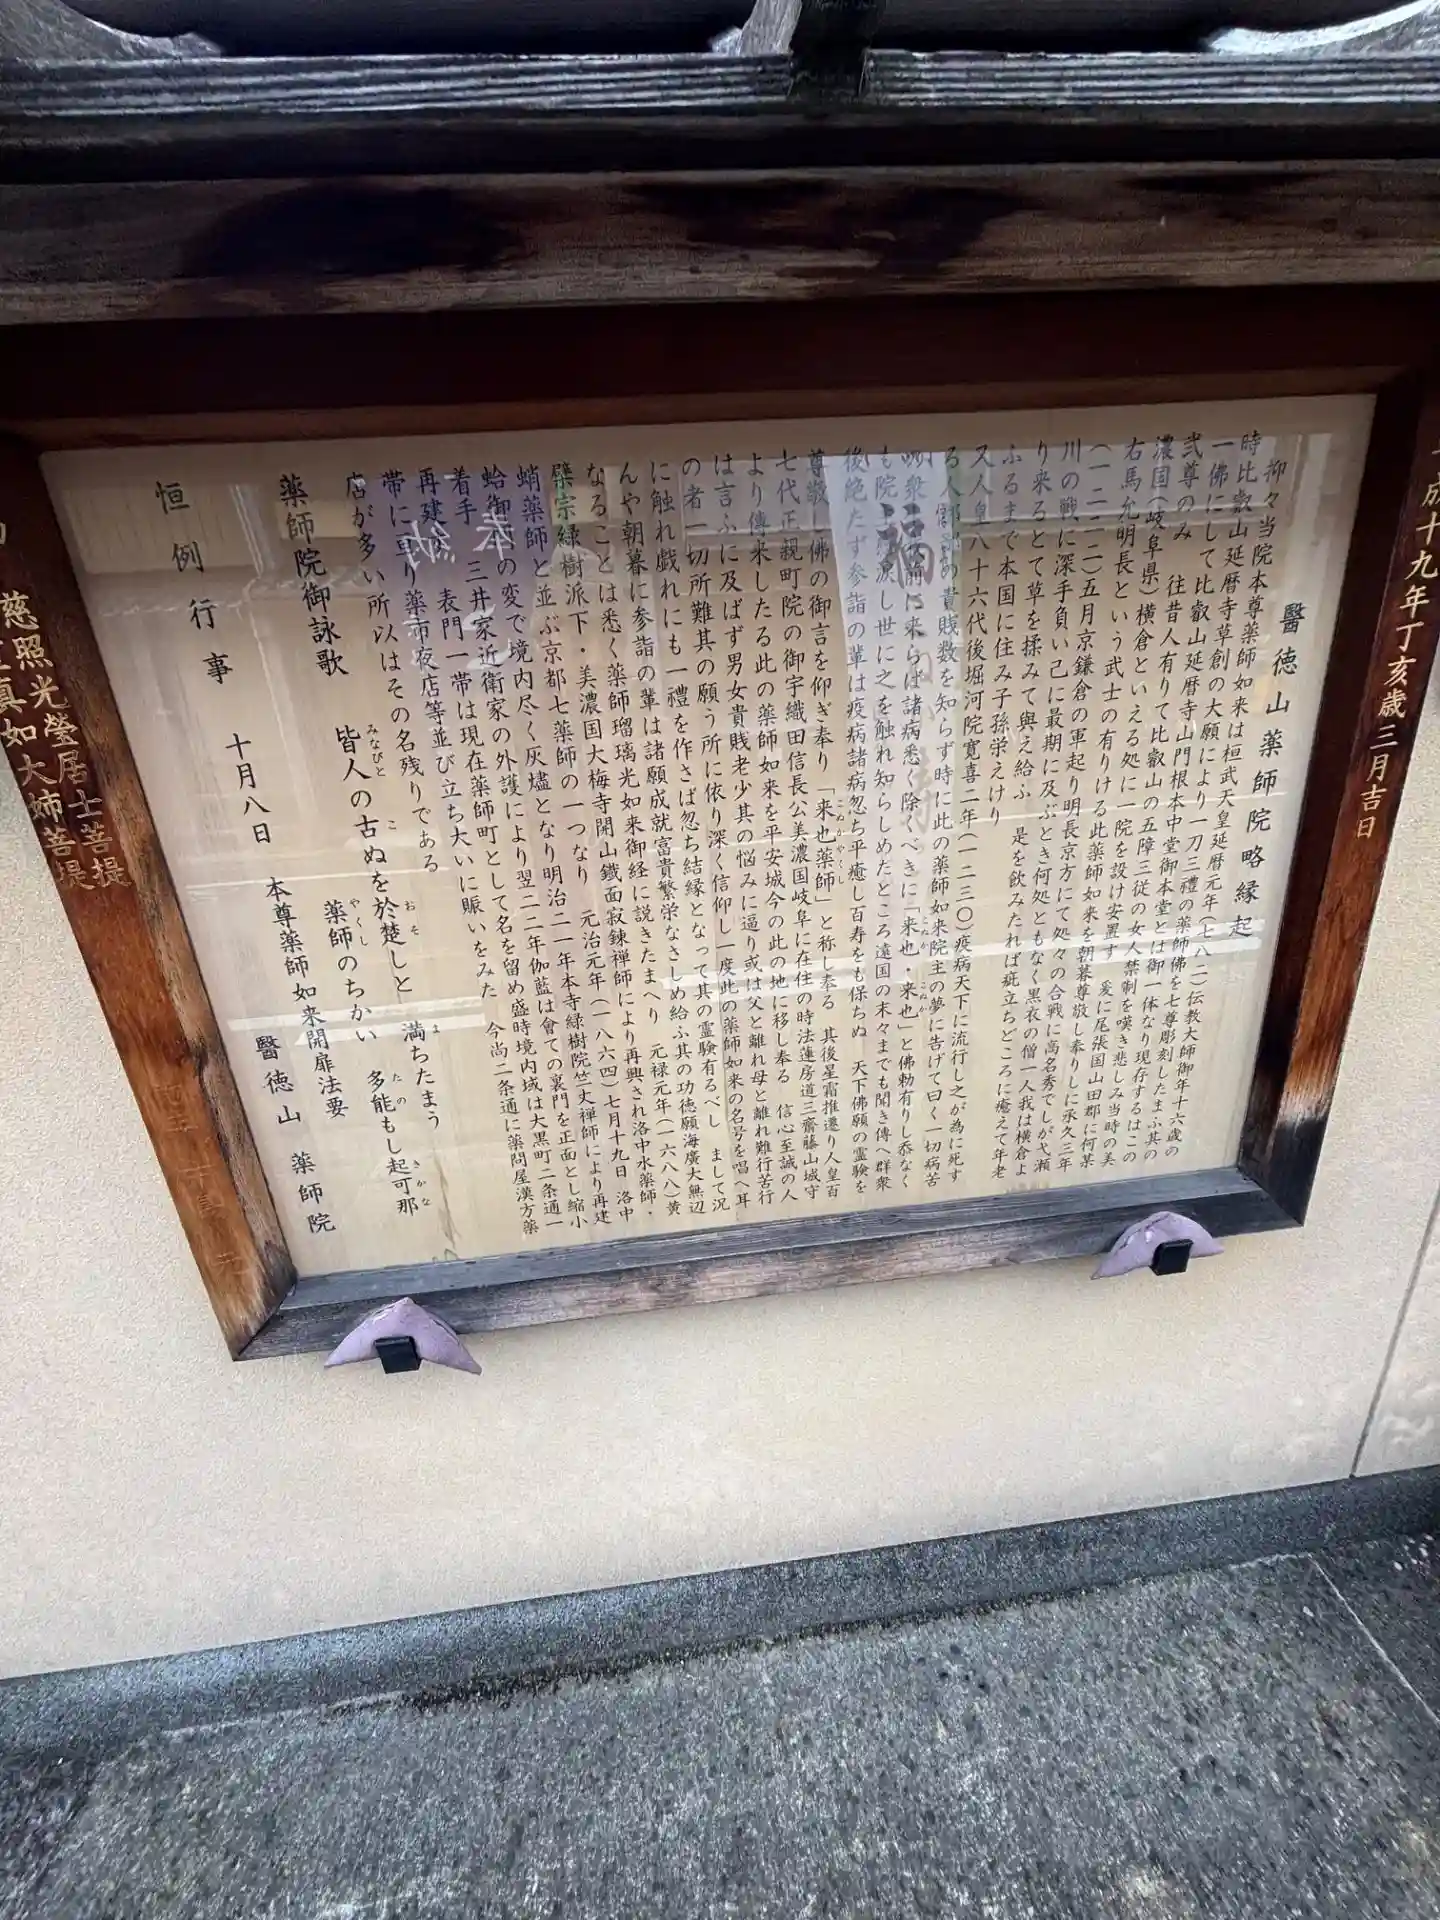 醫徳山　薬師院略縁起
抑々当院本尊薬師如来は桓武天皇延暦元年（七八二）伝教大師御年十六歳の
時比叡山延暦寺草創の大願により一刀三禮の薬師佛を七尊彫刻したまふ其の
一佛にして比叡山延暦寺山門根本中堂御本堂とは御一体なり現存するはこの
弐尊のみ　往昔人有りて比叡山の五障三従の女人禁制を嘆き悲しみ当時の美
濃国（岐阜県）横倉といえる処に一院を設け安置す　爰に尾張国山田郡に何某
右馬允明長という武士の有りける此薬師如来を朝暮尊敬し奉りしに承久三年
（一二二二）五月京鎌倉の軍起り明長京方にて処々の合戦に高名秀でしが弋瀬
川の戦に深手負い己に最期に及ぶとき何処ともなく黒衣の僧一人我は横倉よ
り来るとて草を揉みて與え給ふ　是を飲みたれば疵立ちどころに癒えて年老
ふるまで本国に住み子孫栄えけり
又人皇八十六代後堀河院寛喜二年（一二三〇）疫病天下に流行し之が為に死す
る人都鄙の貴賎数を知らず時に此の薬師如来院主の夢に告げて曰く一切病苦
の衆我前に来らば諸病悉く除くべきに「来也・来也」と佛勅有りし忝なく
も院主感涙し世に之を触れ知らしめたところ遠国の末々までも聞き傳へ群衆
後絶たず参詣の輩は疫病諸病忽ち平癒し百寿をも保ちぬ　天下佛願の霊験を
尊敬し佛の御言を仰ぎ奉り「来也薬師」と称し奉る　其後星霜推遷り人皇百
七代正親町院の御宇織田信長公美濃国岐阜に在住の時法蓮房道三齋藤山城守
より傳来したる此の薬師如来を平安城今の此の地に移し奉る　信心至誠の人
は言ふに及ばず男女貴賎老少其の悩みに逼り或は父と離れ母と離れ難行苦行
の者一切所難其の願う所に依り深く信仰し一度此の薬師如来の名号を唱へ耳
に触れ戯れにも一禮を作さば忽ち結縁となって其の霊験有るべし　まして況
んや朝暮に参詣の輩は諸願成就富貴繁栄なさしめ給ふ其の功徳願海廣大無辺
なることは悉く薬師瑠璃光如来御経に説きたまへり　元禄元年（一六八八）黄
檗宗緑樹派下・美濃国大梅寺開山鐵面寂錬禅師により再興され洛中水薬師・
蛸薬師と並ぶ京都七薬師の一つなり　元治元年（一八六四）七月十九日　洛中
蛤御門の変で境内尽く灰燼となり明治二一年本寺緑樹院竺丈禅師により再建
着手　三井家近衛家の外護により翌二二年伽藍は會ての裏門を正面とし縮小
再建　表門一帯は現在薬師町として名を留め盛時境内域は大黒町二条通一
帯に亘り薬市夜店等並び立ち大いに賑いをみた　今尚二条通に薬問屋漢方薬
店が多い所以はその名残りである
薬師院御詠歌
皆人の古ぬを於楚しと　満ちたまう
みなびと　こ　おそ　ま
薬師のちかい　多能もし起可那
やくし　たの　きかな
恒例行事
十月八日　本尊薬師如来開扉法要
醫徳山　薬師院
成十九年丁亥歳三月吉日
慈照光瑩居士菩提
真如大姉菩提
奉
納